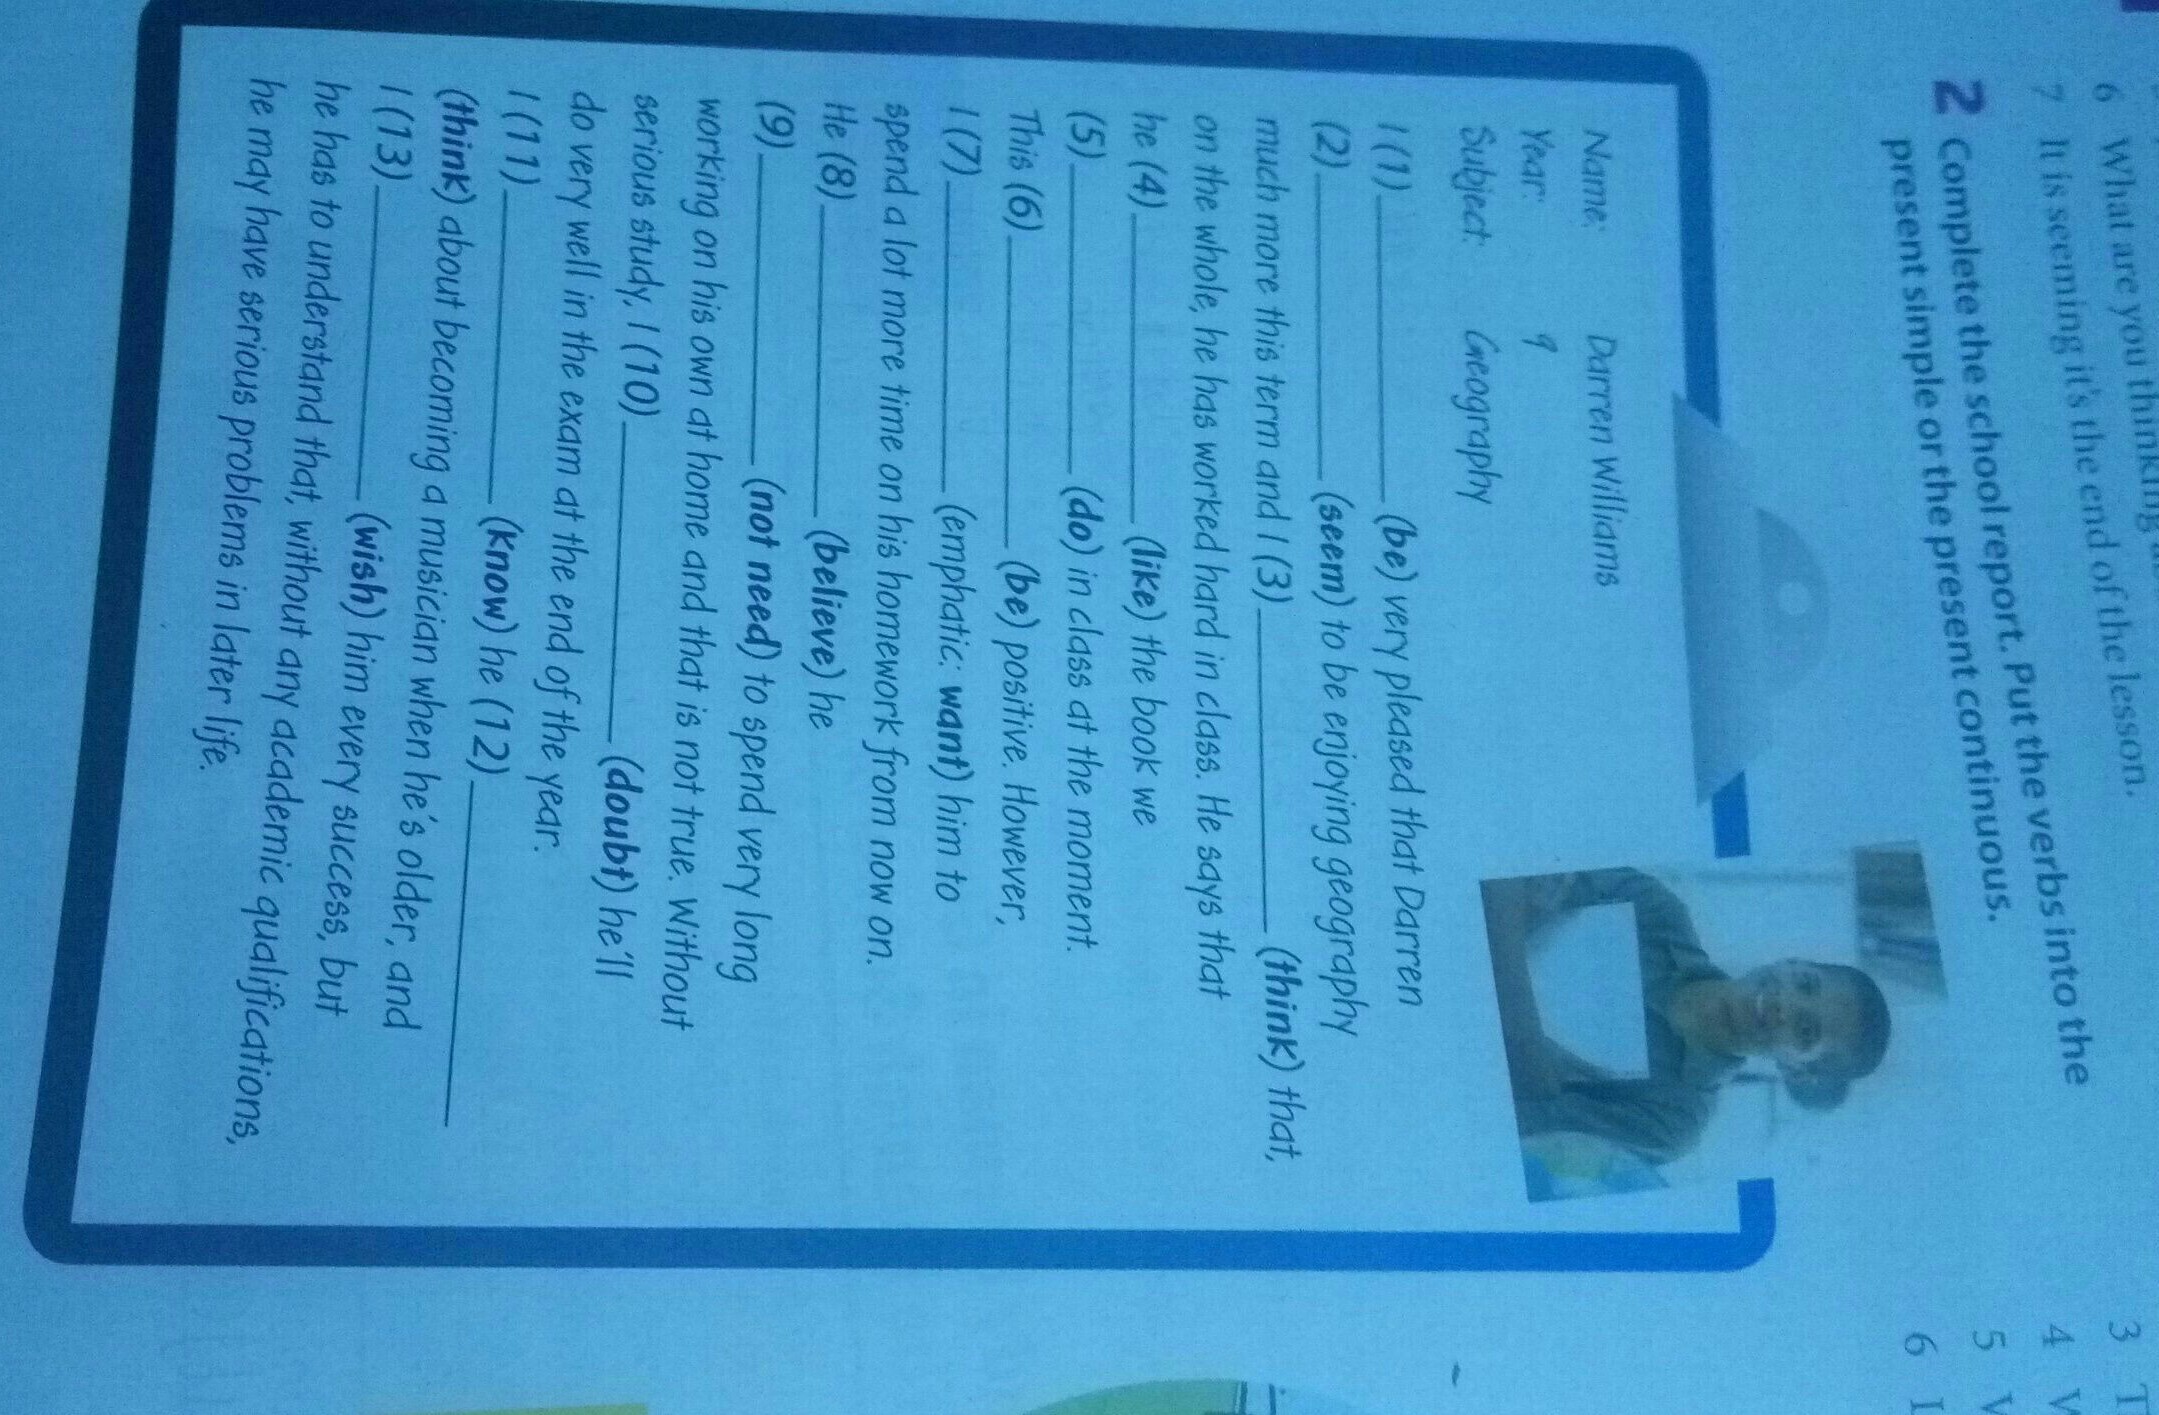 6 What are you thinking
7 It is seeming it's the end of the lesson.
2 Complete the school report. Put the verbs into the
present simple or the present continuous.
Name: Darren Williams
Year: 9
Subject: Geography
I (1) ____________ (be) very pleased that Darren
(2) ____________ (seem) to be enjoying geography
much more this term and I (3) ____________ (think) that,
on the whole, he has worked hard in class. He says that
he (4) ____________ (like) the book we
(5) ____________ (do) in class at the moment.
This (6) ____________ (be) positive. However,
I (7) ____________ (emphatic: want) him to
spend a lot more time on his homework from now on.
He (8) ____________ (believe) he
(9) ____________ (not need) to spend very long
working on his own at home and that is not true. Without
serious study, I (10) ____________ (doubt) he'll
do very well in the exam at the end of the year.
I (11) ____________ (know) he (12) ____________
(think) about becoming a musician when he's older, and
I (13) ____________ (wish) him every success, but
he has to understand that, without any academic qualifications,
he may have serious problems in later life.
3 T
4 W
5 V
6 I